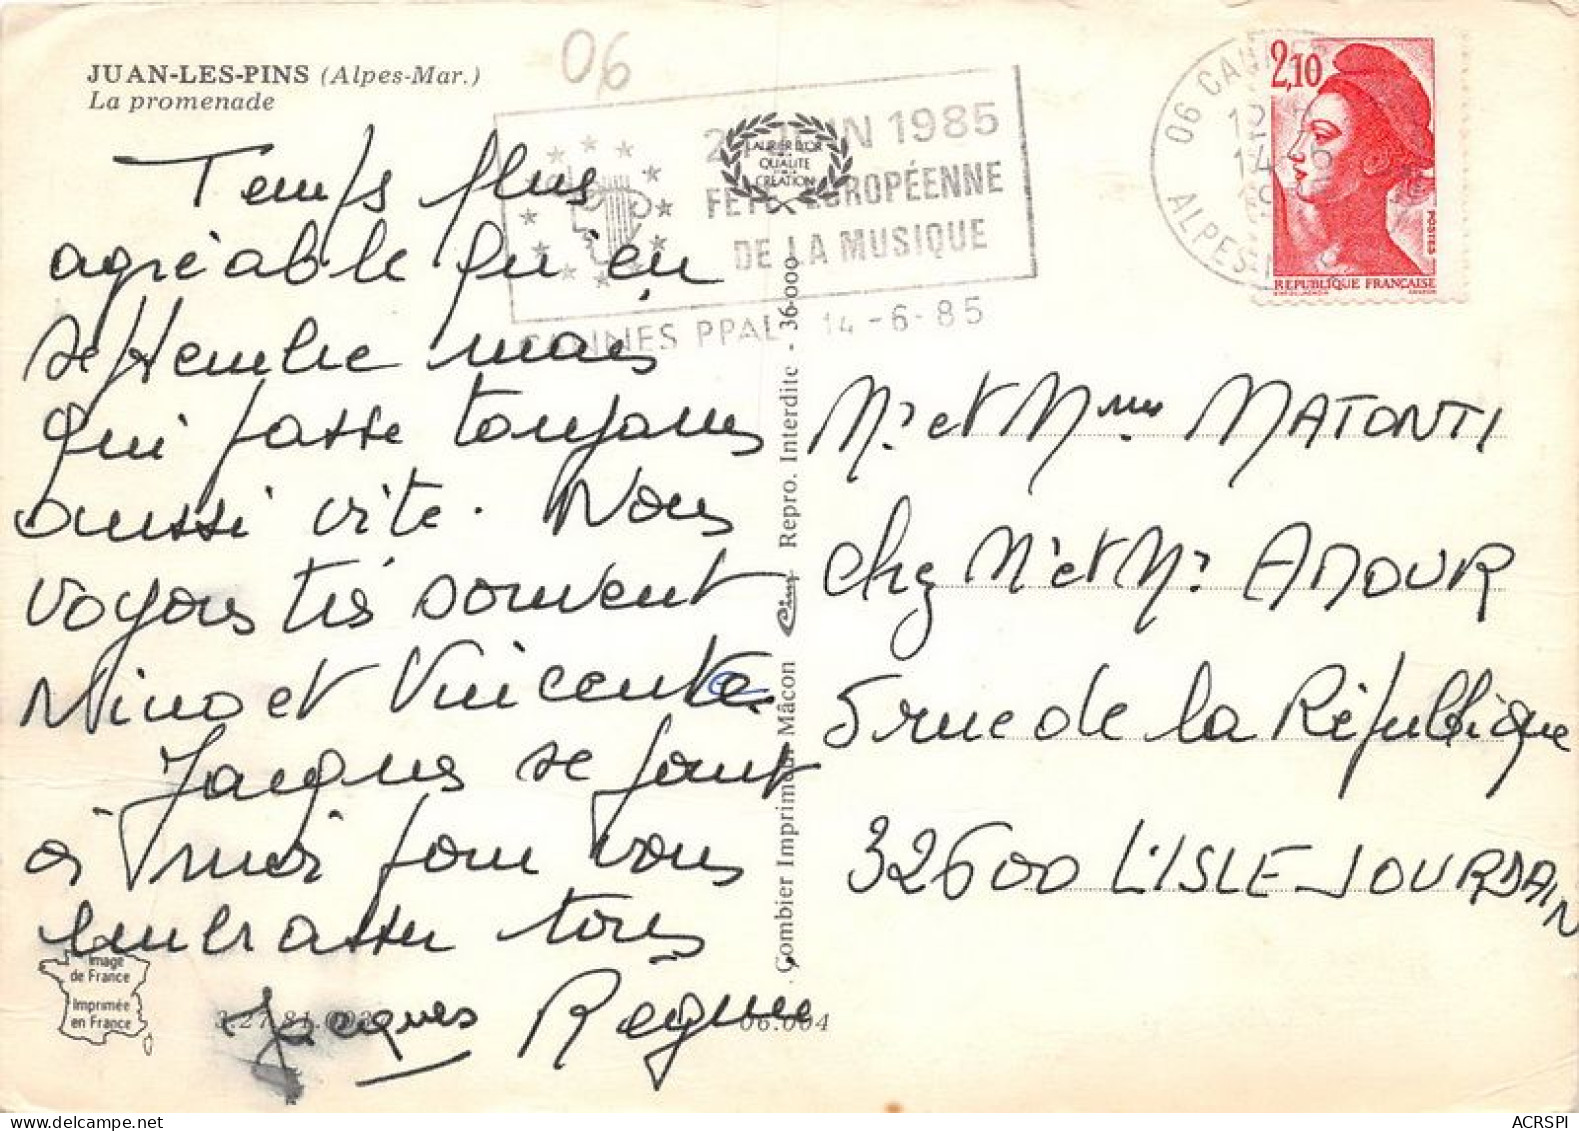 JUAN-LES-PINS (Alpes-Mar.)
La promenade
06
21 JUIN 1985
FÊTE EUROPÉENNE
DE LA MUSIQUE
CANNES PPAL 14-6-85
LAURIER D'OR
QUALITÉ
CRÉATION
06 CANNES
ALPES-M
2,10
POSTES
RÉPUBLIQUE FRANÇAISE
Temps plus
agréable qu'en
septembre mais
qui passe toujours
aussi vite. Nous
voyons très souvent
Nino et Vincente.
Jacques se joint
à moi pour vous
embrasser tous
Jacques Regine
Mr et Mme MATONTI
chez Mr et Mr AMOUR
5 rue de la République
32600 L'ISLE JOURDAIN
Combier Imprimeur Mâcon Cim Repro. Interdite - 36-000
Image
de France
Imprimée
en France
06.004
ACRSPI